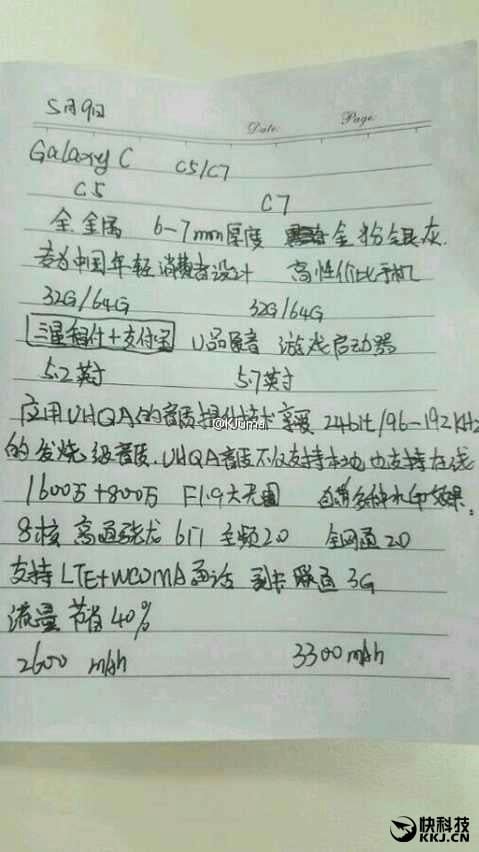 5月9日
Date Page
Galaxy C C5/C7
C5 C7
全金属 6-7mm厚度 金粉银灰.
专为中国年轻消费者设计 高性价比手机
32G/64G 32G/64G
三星智付+支付宝 U品 音 游戏启动器
5.2英寸 5.7英寸
应用UHQA的音质提升技术 享受 24bit/96-192KHz
@KJuma
的发烧级音质.UHQA音质不仅支持本地也支持在线
1600万+800万 F1.9大光圈 多种水印效果.
8核 高通骁龙 617 主频2.0 全网通2.0
支持LTE+WCDMA通话 副卡 联通 3G
流量 节省40%
2600 mAh 3300 mAh
快科技
KKJ.CN